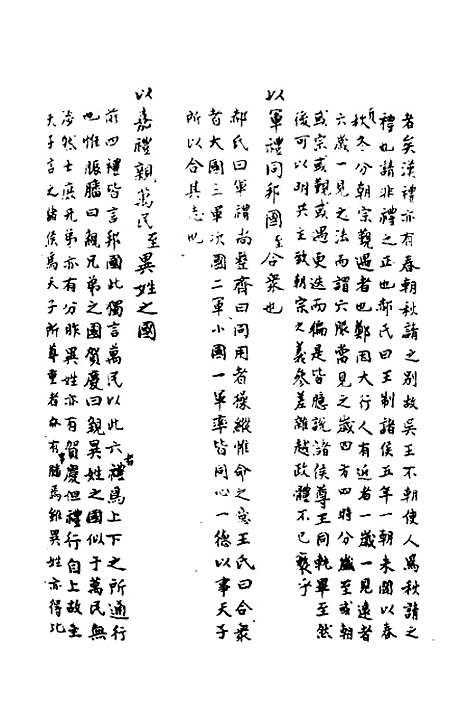 者矣漢禮亦有春朝秋請之別故吳王不朝使人爲秋請之
禮也請非禮之正也郝氏曰王制諸侯五年一朝未聞以春
夏秋冬分朝宗覲遇者也鄭因大行人有近者一歲一見遠者
六歲一見之法而謂六服當見之歲四方四時分歲至或朝
或宗或覲或遇更迭而徧是皆臆說諸侯尊王同軌畢至然
後可以明共主故朝宗之義參差離越政體不已褻乎
以軍禮同邦國至合衆也
郝氏曰軍禮尚整齊曰同用者操縱惟命之意王氏曰合衆
者大國三軍次國二軍小國一軍率皆同心一德以事天子
所以合其志也
以嘉禮親萬民至異姓之國
前四禮皆言邦國此獨言萬民以此六禮者爲上下之所通行
也惟脤膰曰親兄弟之國賀慶曰親異姓之國似于萬民無
涉然士庶兄弟亦有分胙異姓亦有賀慶但禮行自上故主
天子言之諸侯爲天子所尊重者亦有膰焉雖異姓亦得比